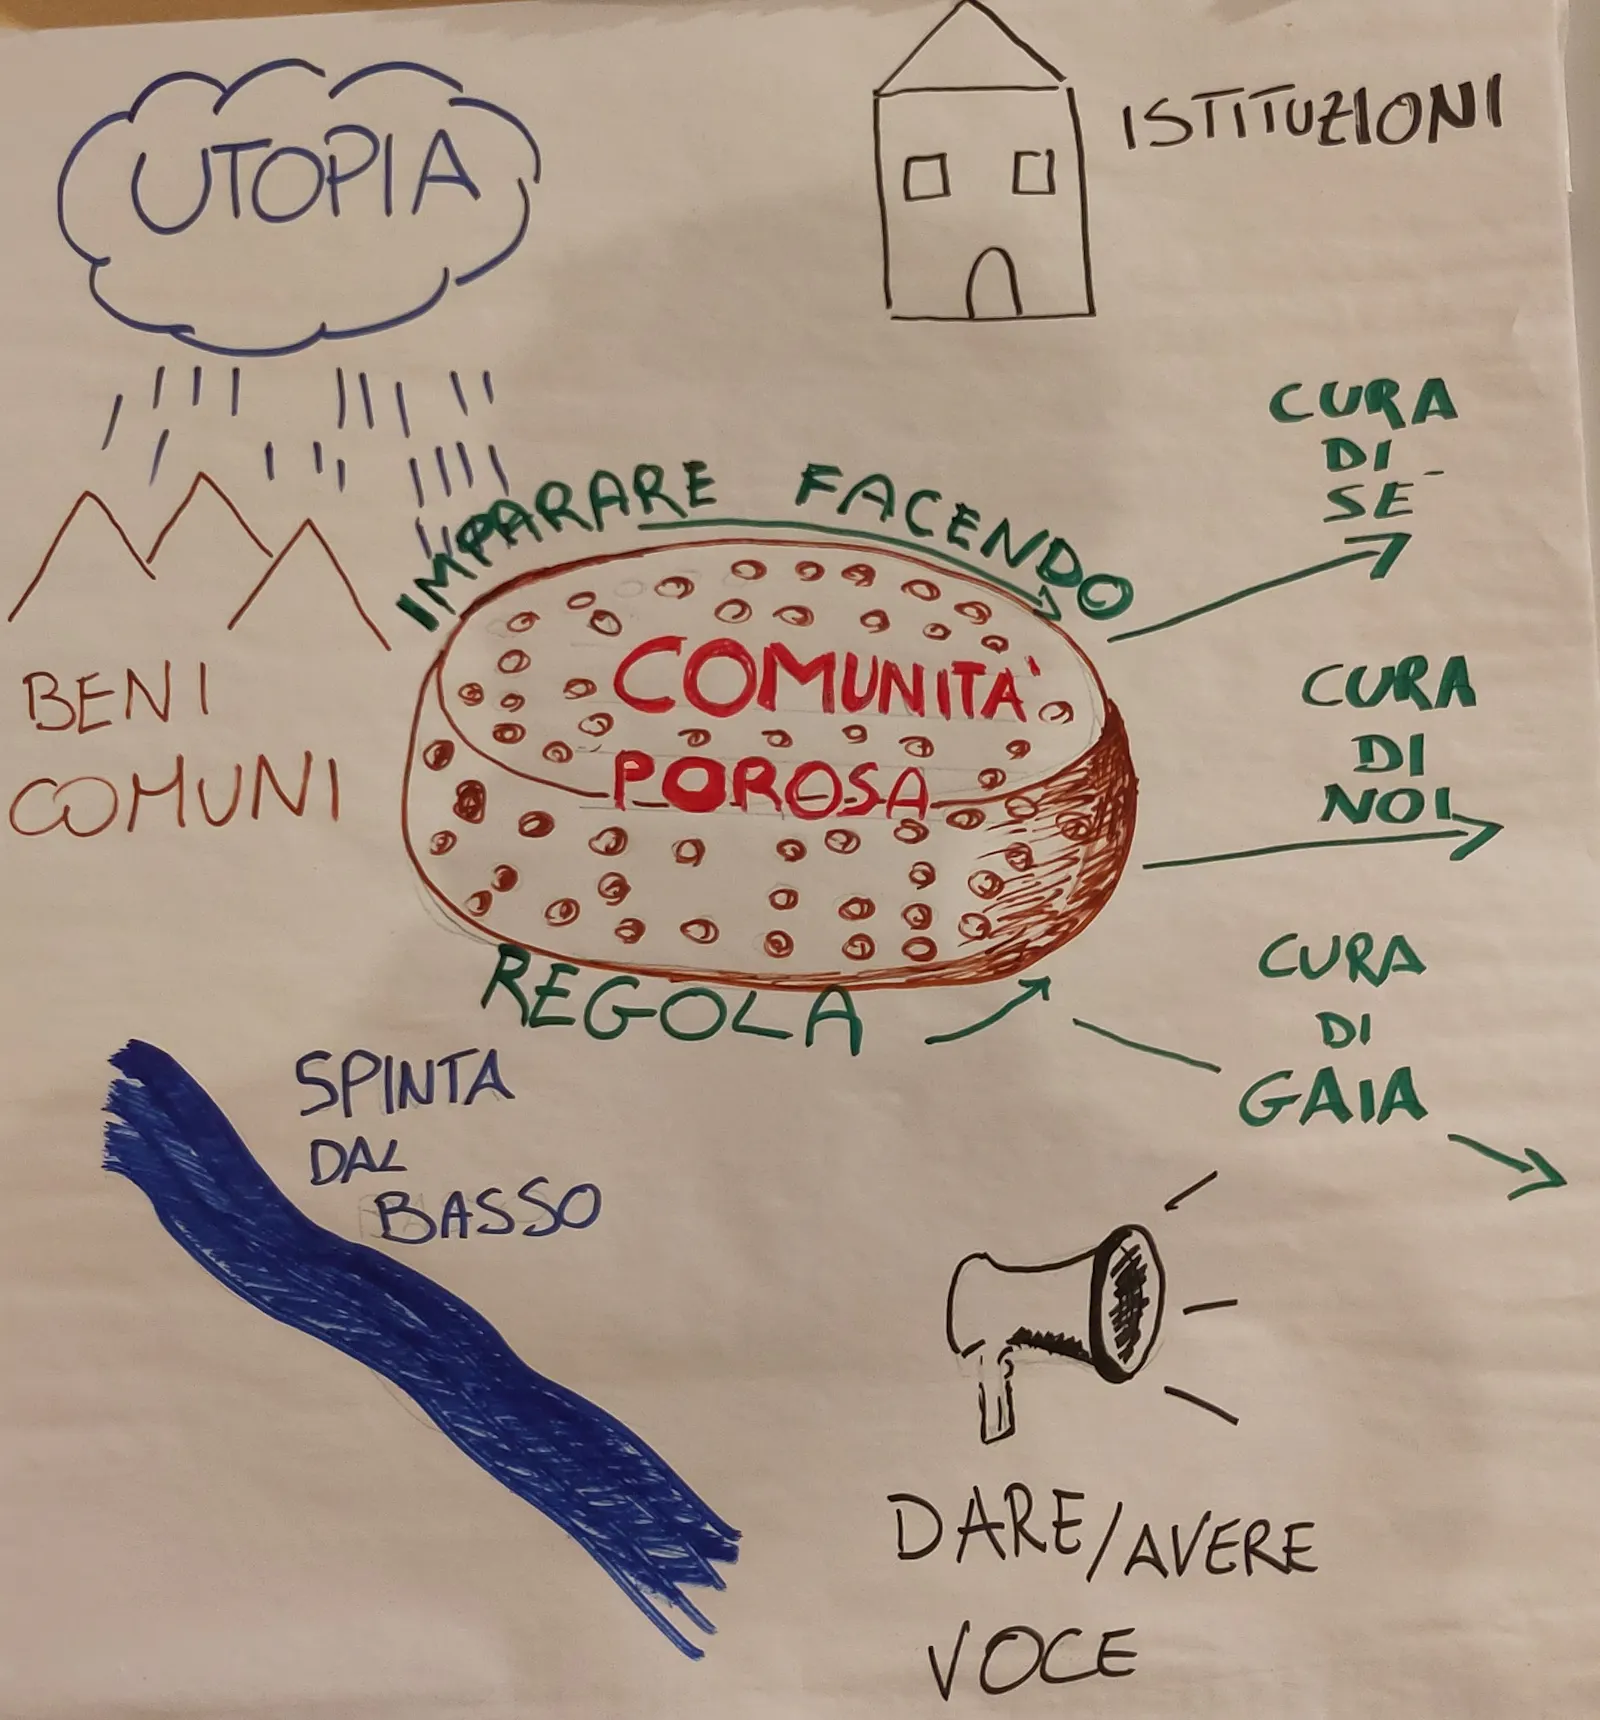 UTOPIA
ISTITUZIONI
IMPARARE FACENDO
CURA
DI
SÉ
BENI
COMUNI
COMUNITÀ
POROSA
CURA
DI
NOI
REGOLA
CURA
DI
GAIA
SPINTA
DAL
BASSO
DARE/AVERE
VOCE